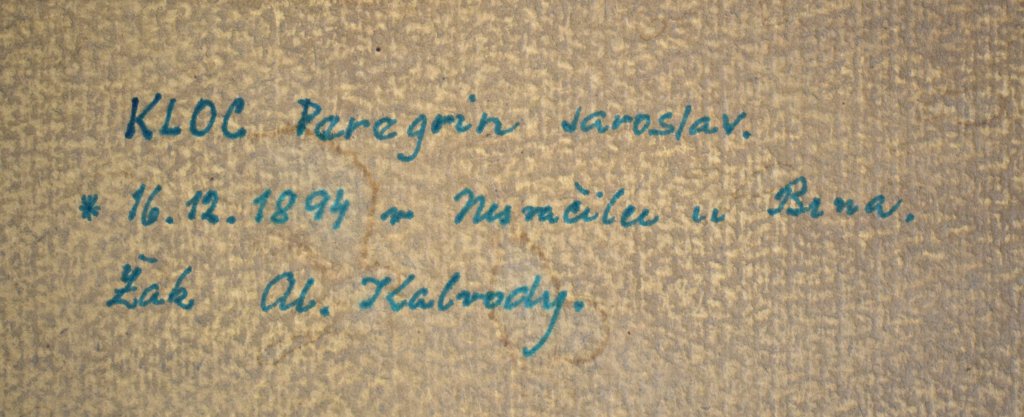 KLOC Peregrin Jaroslav.
* 16.12.1894 v Nesvačilce u Brna.
Žak Al. Kalvody.